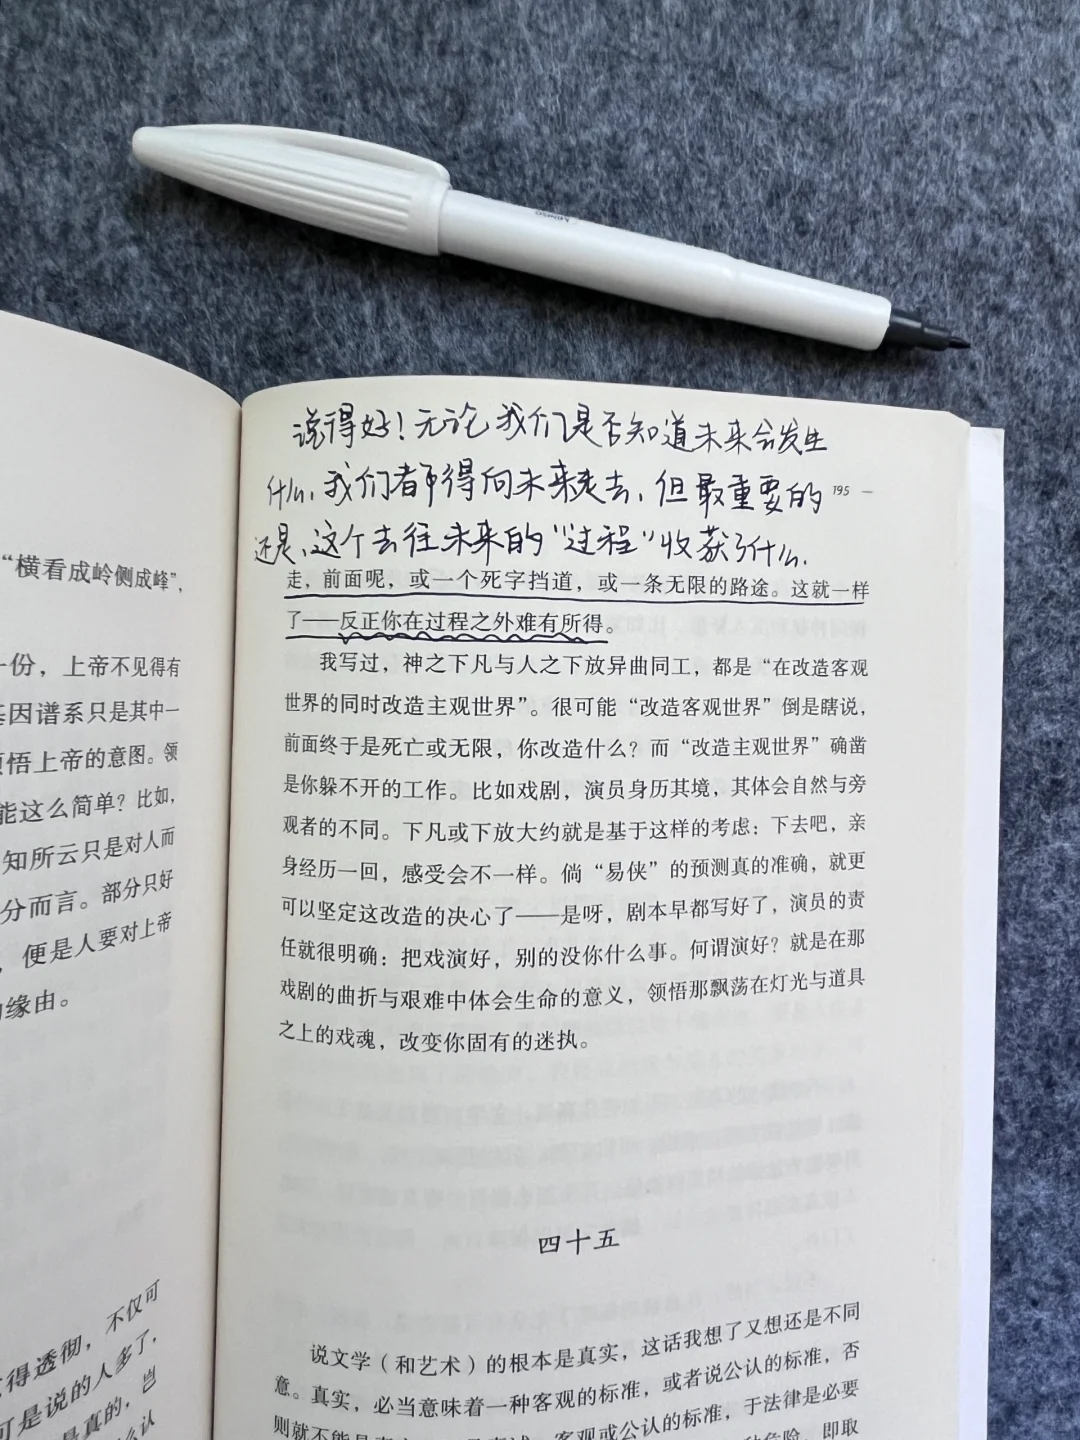 说得好！无论我们是否知道未来会发生
什么，我们都得向未来走去，但最重要的
还是，这个去往未来的“过程”收获了什么。
195
走，前面呢，或一个死字挡道，或一条无限的路途。这就一样
了——反正你在过程之外难有所得。
我写过，神之下凡与人之下放异曲同工，都是“在改造客观
世界的同时改造主观世界”。很可能“改造客观世界”倒是瞎说，
前面终于是死亡或无限，你改造什么？而“改造主观世界”确凿
是你躲不开的工作。比如戏剧，演员身历其境，其体会自然与旁
观者的不同。下凡或下放大约就是基于这样的考虑：下去吧，亲
身经历一回，感受会不一样。倘“易侠”的预测真的准确，就更
可以坚定这改造的决心了——是呀，剧本早都写好了，演员的责
任就很明确：把戏演好，别的没你什么事。何谓演好？就是在那
戏剧的曲折与艰难中体会生命的意义，领悟那飘荡在灯光与道具
之上的戏魂，改变你固有的迷执。
四十五
说文学（和艺术）的根本是真实，这话我想了又想还是不同
意。真实，必当意味着一种客观的标准，或者说公认的标准，否
则就不能是
客观或公认的标准，于法律是必要
危险，即取
“横看成岭侧成峰”，
一份，上帝不见得有
基因谱系只是其中一
领悟上帝的意图。领
能这么简单？比如，
知所云只是对人而
分而言。部分只好
，便是人要对上帝
的缘由。
得透彻，不仅可
可是说的人多了，
是真的，岂
么认